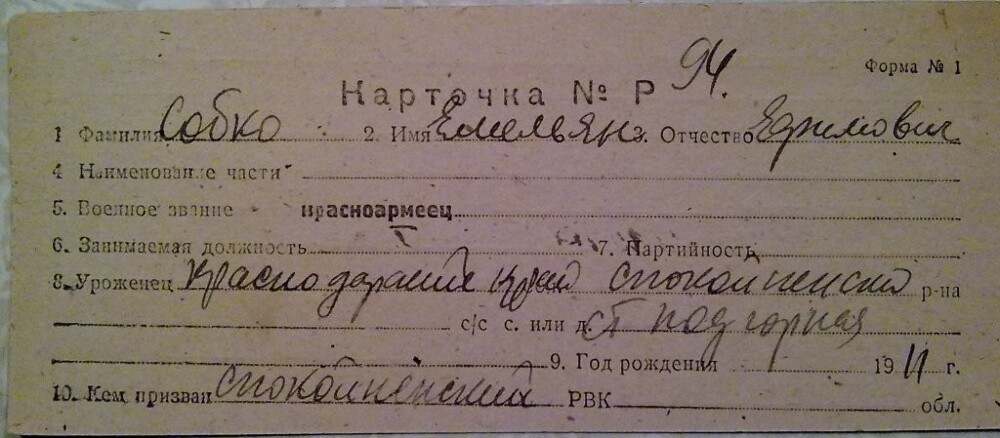 Форма № 1
Карточка № Р 94.
1 Фамилия Собко 2. Имя Емельян 3. Отчество Ефимович
4 Наименование части
5. Военное звание красноармеец
6. Занимаемая должность 7. Партийность
8. Уроженец Краснодарский край Спокойненский р-на
с/с с. или д. ст Подгорная
9. Год рождения 1911 г.
10. Кем призван Спокойненский РВК обл.